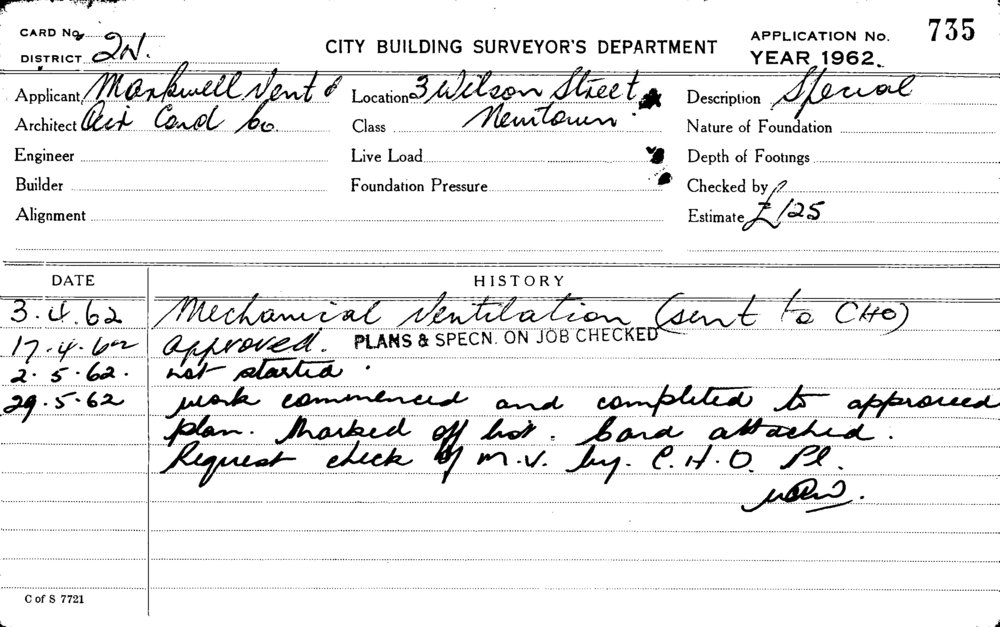 CARD No. 2N. CITY BUILDING SURVEYOR'S DEPARTMENT APPLICATION No. 735
DISTRICT YEAR 1962.
Applicant Markwell Vent & Location 3 Wilson Street Description Special
Architect Air Cond Co. Class Newtown. Nature of Foundation
Engineer Live Load Depth of Footings
Builder Foundation Pressure Checked by
Alignment Estimate £125
DATE HISTORY
3.4.62 Mechanical Ventilation (sent to CHO)
17.4.62 approved. PLANS & SPECN. ON JOB CHECKED
2.5.62. not started.
29.5.62 work commenced and completed to approved
plan. Marked off list. Card attached.
Request check of M.V. by. C.H.O. Pl.
C of S 7721